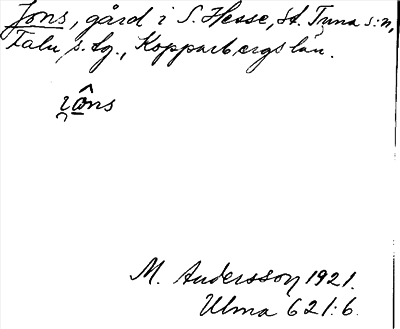 Jons, gård i S. Hesse, St. Tuna s:n,
Falu s. tg., Kopparbergs län.
M. Andersson 1921.
Ulma 621:6.